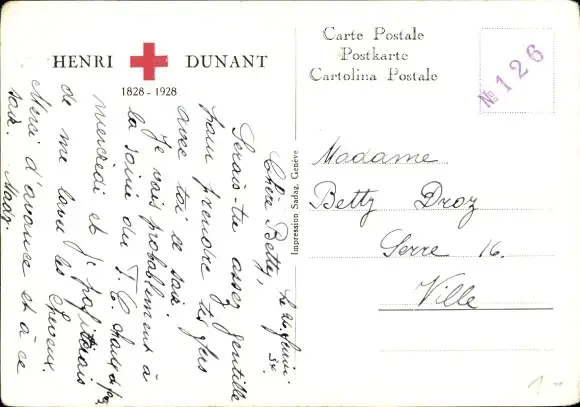 HENRI DUNANT
1828 - 1928
Carte Postale
Postkarte
Cartolina Postale
№ 126
Impression Sadag, Genève
Madame
Betty Droz
Serre 16.
Ville
Le 26
34.
Chère Betty,
Serais-tu assez gentille
pour prendre tes fers
avec toi ce soir.
Je vais probablement à
la soirée du T. C.
mercredi et je profiterais
de me laver les cheveux.
Merci d'avance et à ce
soir. Mady.